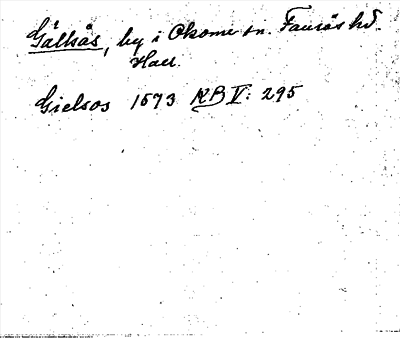 Gälkås, by i Okome sn. Faurås hd.
Hall.
Gielsos 1573 KB V: 295